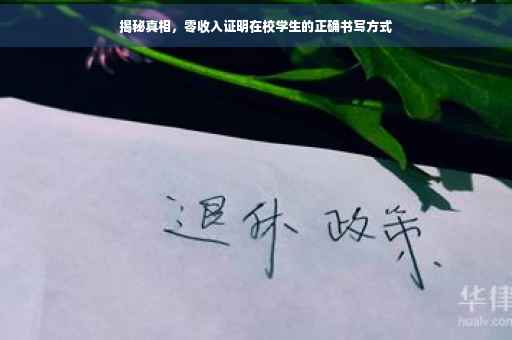 揭秘真相，零收入证明在校学生的正确书写方式
退休 政策
华律
hualv.com